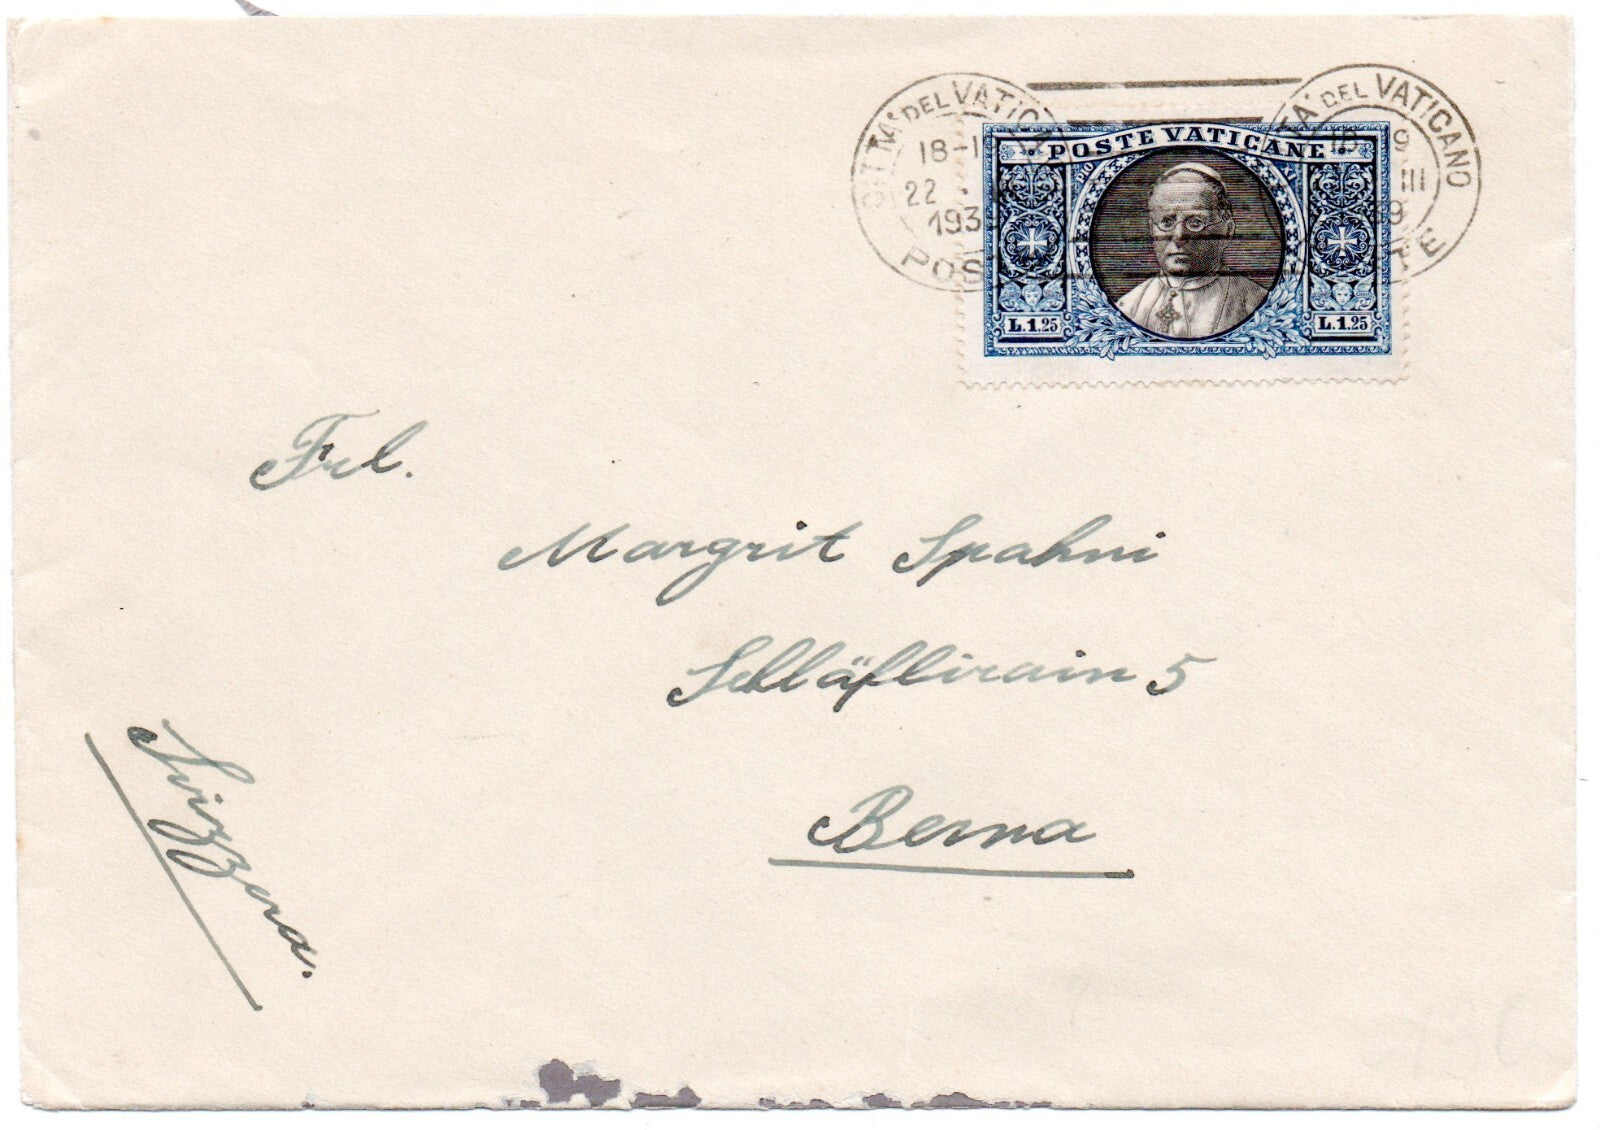 CITTA' DEL VATICANO
18-1
22
193
POSTE
POSTE VATICANE
PIO XI
L.1.25
L.1.25
CITTA' DEL VATICANO
18 9
III
39
POSTE
Frl.
Margrit Spahni
Schläflirain 5
Berna
Svizzera.